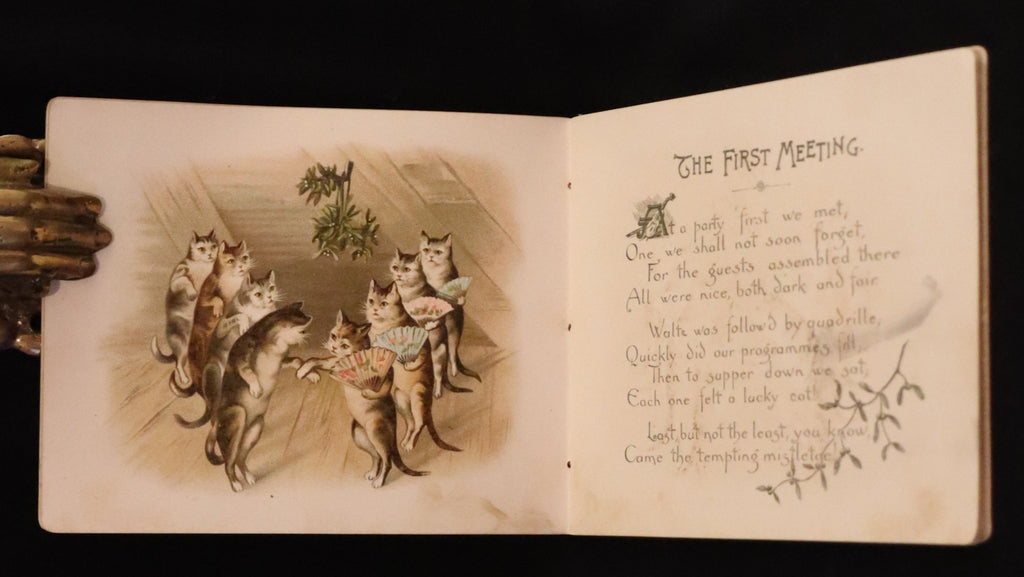 THE FIRST MEETING.
At a party first we met,
One, we shall not soon forget,
For the guests assembled there
All were nice, both dark and fair.
Waltz was follow'd by quadrille,
Quickly did our programmes fill,
Then to supper down we sat,
Each one felt a lucky cat!
Last, but not the least, you know,
Came the tempting mistletoe!